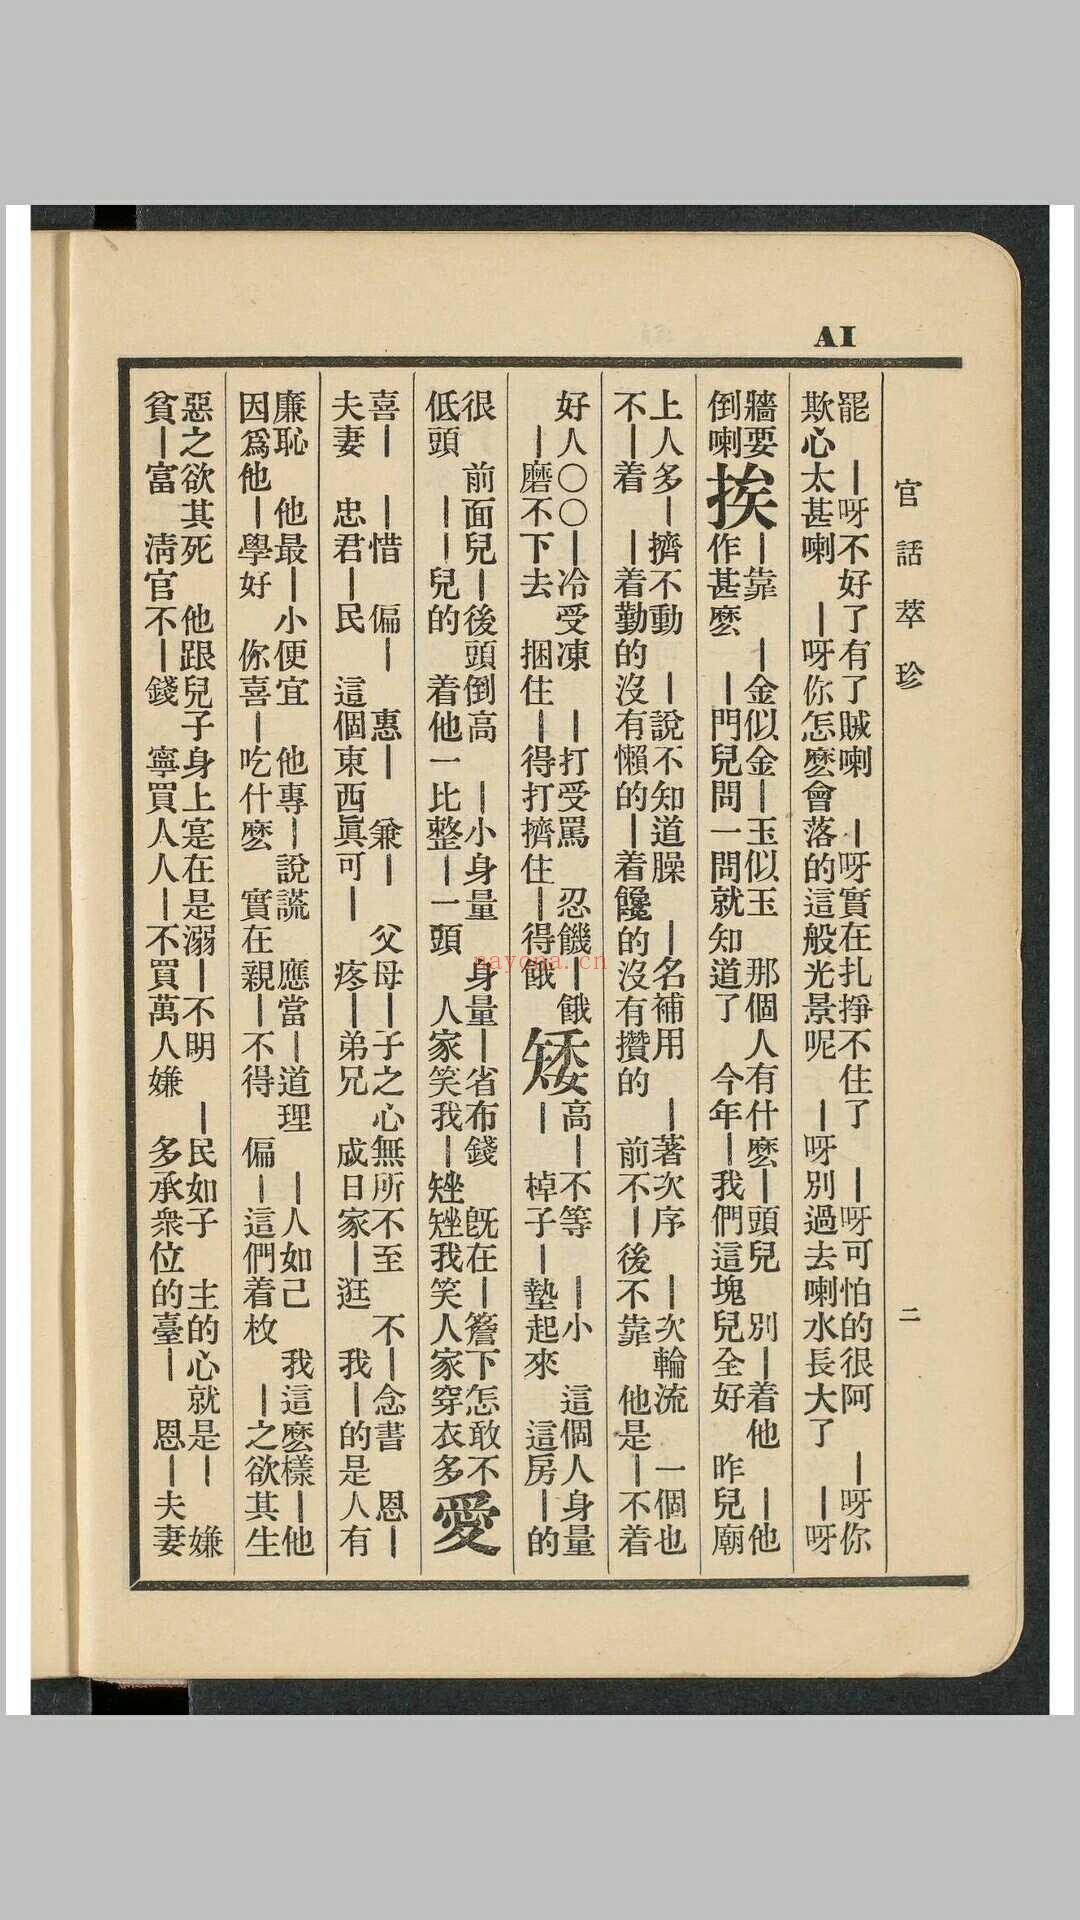 AI
官話萃珍 二
罷 ｜呀不好了有了賊喇 ｜呀實在扎掙不住了 ｜呀可怕的很阿 ｜呀你
欺心太甚喇 ｜呀你怎麽會落的這般光景呢 ｜呀別過去喇水長大了 ｜呀
牆要
倒喇
挨
｜靠 ｜金似金｜玉似玉 那個人有什麽｜頭兒 別｜着他 ｜他
作甚麽 ｜門兒問一問就知道了 今年｜我們這塊兒全好 昨兒廟
上人多｜擠不動 ｜說不知道臊 ｜名補用 ｜著次序 ｜次輪流 一個也
不｜着 ｜着勤的沒有懶的｜着饞的沒有攢的 前不｜後不靠 他是｜不着
好人〇〇｜冷受凍 ｜打受罵 忍饑｜餓
｜磨不下去 捆住｜得打擠住｜得餓
矮
高｜不等 ｜小 這個人身量
｜ 棹子｜墊起來 這房｜的
很 前面兒｜後頭倒高 ｜小身量 身量｜省布錢 旣在｜簷下怎敢不
低頭 ｜｜兒的 着他一比整｜一頭 人家笑我｜矬矬我笑人家穿衣多
愛
喜｜ ｜惜 偏｜ 惠｜ 兼｜ 父母｜子之心無所不至 不｜念書 恩｜
夫妻 忠君｜民 這個東西眞可｜ 疼｜弟兄 成日家｜逛 我｜的是人有
廉恥 他最｜小便宜 他專｜說謊 應當｜道理 ｜人如己 我這麽樣｜他
因爲他｜學好 你喜｜吃什麽 實在親｜不得 偏｜這們着枚 ｜之欲其生
惡之欲其死 他跟兒子身上寔在是溺｜不明 ｜民如子 主的心就是｜ 嫌
貧｜富 淸官不｜錢 寧買人人｜不買萬人嫌 多承衆位的臺｜ 恩｜夫妻
nayona.cn